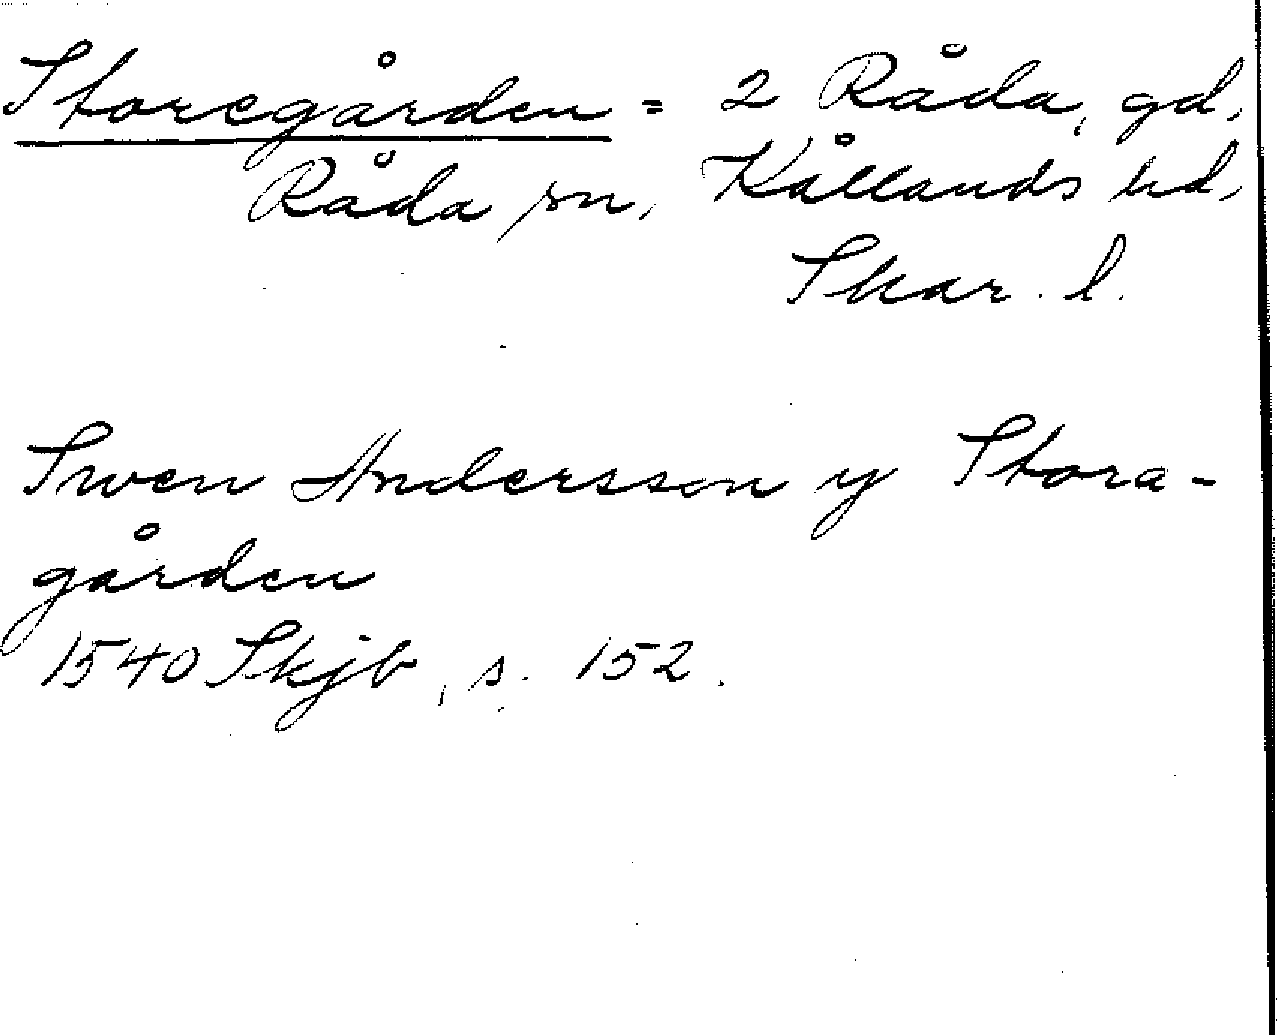 Storegården = 2 Råda, gd,
Råda sn, Kållands hd,
Skar. l.
Swen Andersson y Stora-
gården
1540 Skjb, s. 152.